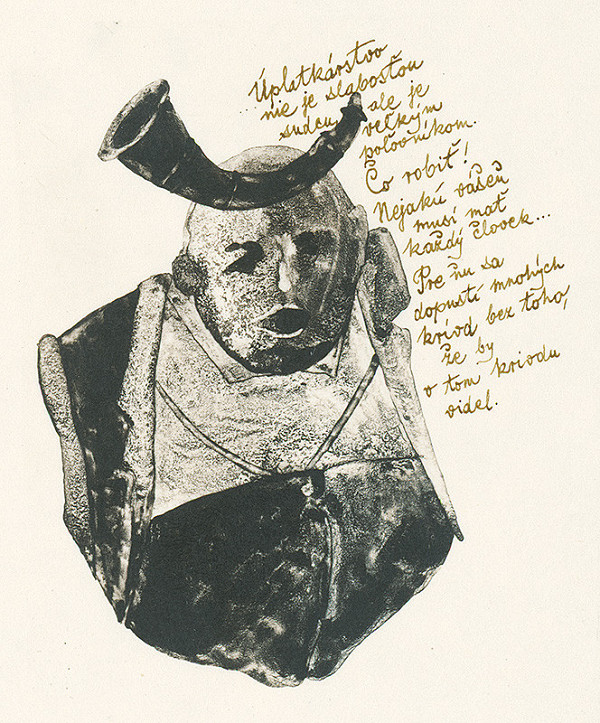 ...Úplatkárstvo
nie je slabosťou
sudcu, ale je
veľkým
poľovníkom.
Čo robiť!
Nejakú vášeň
musí mať
každý človek...
Pre ňu sa
dopustí mnohých
krívd bez toho,
že by
v tom krivdu
videl.